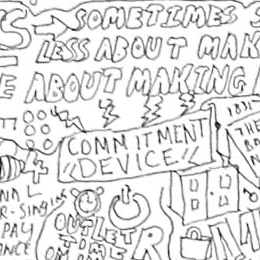 S- SOMETIMES S
LESS ABOUT MAK
E ABOUT MAKING
COMMITMENT
"DEVICE"
THE
NAL
R-SINGIN
PAY
ANCE
OUTLET
TIME
R